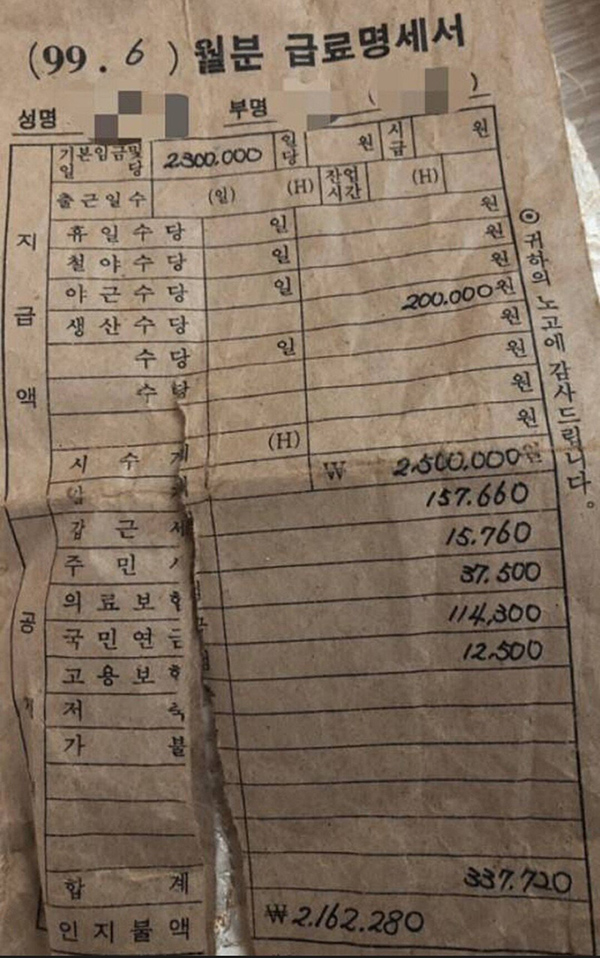 (99. 6 ) 월분 급료명세서
성명 부명 ( )
기본임금및 일당 2.300.000 일당 원 시급 원
출근일수 (일) (H) 작업시간 (H)
지급액
휴일수당 일 원
철야수당 일 원
야근수당 일 원
생산수당 200.000원
수당 일 원
수당 원
원
(H) 원
시 수 계
₩ 2.500.000원
갑근세 157.660
주민 15.760
의료보험 37.500
국민연금 114.300
고용보험 12.500
저축
가불
공
합계 337.720
인지불액 ₩2.162.280
◎ 귀하의 노고에 감사드립니다。